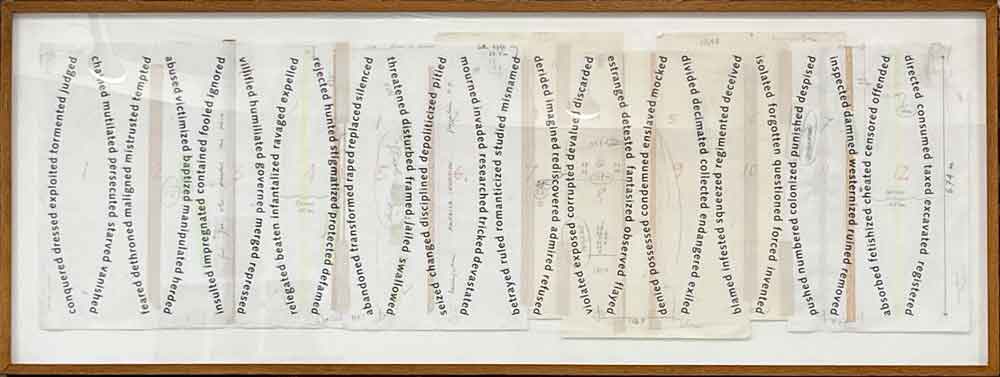 conquered dressed exploited tormented judged
chained mutilated persecuted starved vanished
feared dethroned maligned mistrusted tempted
abused victimized baptized manipulated herded
insulted impregnated contained fooled ignored
vilified humiliated governed merged repressed
relegated beaten infantalized ravaged expelled
rejected hunted stigmatized protected defamed
abandoned transformed raped replaced silenced
threatened disturbed framed jailed swallowed
seized changed disciplined depoliticized pitied
mourned invaded researched tricked devastated
betrayed ruled romanticized studied misnamed
derided imagined rediscovered admired refused
violated exposed corrupted devalued discarded
estranged detested fantasized observed flayed
denied possessed condemned enslaved mocked
divided decimated collected endangered exiled
blamed infested sequestered regimented deceived
isolated forgotten questioned forced invented
pushed numbered colonized punished despised
inspected damned westernized ruined removed
absorbed fetishized cheated censored offended
directed consumed taxed excavated registered